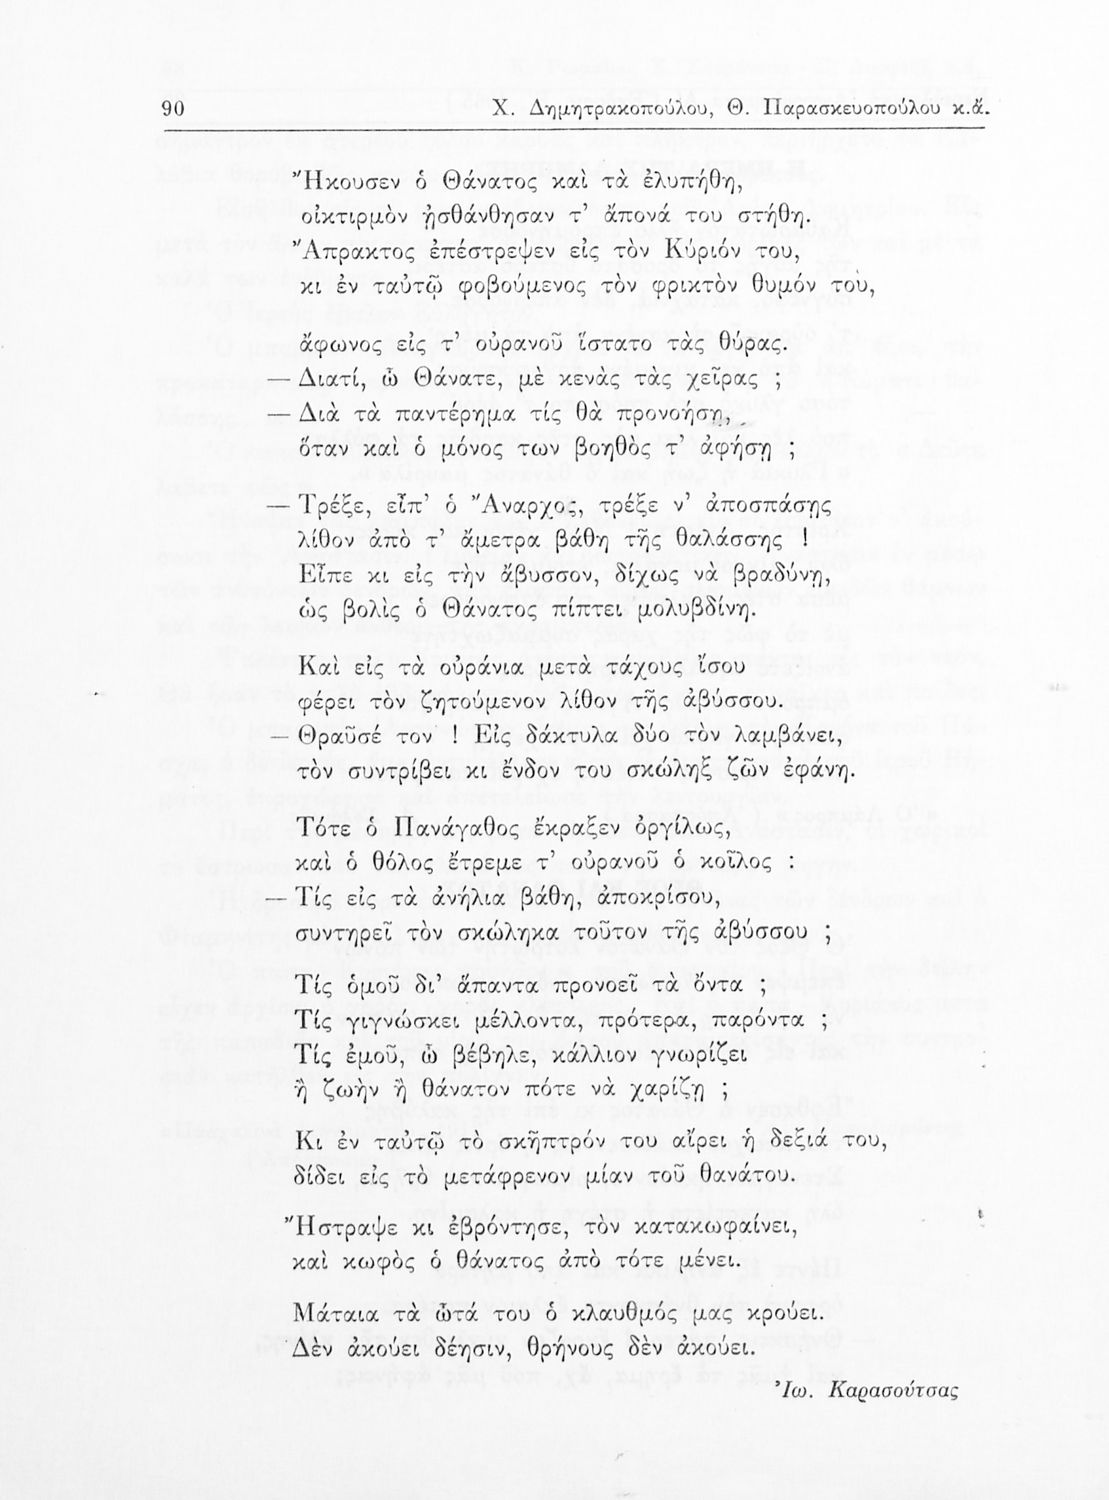 90
Χ. Δημητρακοπούλου, Θ. Παρασκευοπούλου κ.ἄ.
Ἤκουσεν ὁ Θάνατος καὶ τὰ ἐλυπήθη,
οἰκτιρμὸν ᾐσθάνθησαν τ’ ἄπονά του στήθη.
Ἄπρακτος ἐπέστρεψεν εἰς τὸν Κύριόν του,
κι ἐν ταὐτῷ φοβούμενος τὸν φρικτὸν θυμόν του,
ἄφωνος εἰς τ’ οὐρανοῦ ἵστατο τὰς θύρας.
— Διατί, ὦ Θάνατε, μὲ κενὰς τὰς χεῖρας ;
— Διὰ τὰ παντέρημα τίς θὰ προνοήσῃ,
ὅταν καὶ ὁ μόνος των βοηθὸς τ’ ἀφήσῃ ;
— Τρέξε, εἶπ’ ὁ Ἄναρχος, τρέξε ν’ ἀποσπάσῃς
λίθον ἀπὸ τ’ ἄμετρα βάθη τῆς θαλάσσης !
Εἶπε κι εἰς τὴν ἄβυσσον, δίχως νὰ βραδύνῃ,
ὡς βολὶς ὁ Θάνατος πίπτει μολυβδίνη.
Καὶ εἰς τὰ οὐράνια μετὰ τάχους ἴσου
φέρει τὸν ζητούμενον λίθον τῆς ἀβύσσου.
— Θραῦσέ τον ! Εἰς δάκτυλα δύο τὸν λαμβάνει,
τὸν συντρίβει κι ἔνδον του σκώληξ ζῶν ἐφάνη.
Τότε ὁ Πανάγαθος ἔκραξεν ὀργίλως,
καὶ ὁ θόλος ἔτρεμε τ’ οὐρανοῦ ὁ κοῖλος :
— Τίς εἰς τὰ ἀνήλια βάθη, ἀποκρίσου,
συντηρεῖ τὸν σκώληκα τοῦτον τῆς ἀβύσσου ;
Τίς ὁμοῦ δι’ ἅπαντα προνοεῖ τὰ ὄντα ;
Τίς γιγνώσκει μέλλοντα, πρότερα, παρόντα ;
Τίς ἐμοῦ, ὦ βέβηλε, κάλλιον γνωρίζει
ἢ ζωὴν ἢ θάνατον πότε νὰ χαρίζῃ ;
Κι ἐν ταὐτῷ τὸ σκῆπτρόν του αἴρει ἡ δεξιά του,
δίδει εἰς τὸ μετάφρενον μίαν τοῦ θανάτου.
Ἤστραψε κι ἐβρόντησε, τὸν κατακωφαίνει,
καὶ κωφὸς ὁ θάνατος ἀπὸ τότε μένει.
Μάταια τὰ ὦτά του ὁ κλαυθμός μας κρούει.
Δὲν ἀκούει δέησιν, θρήνους δὲν ἀκούει.
Ἰω. Καρασούτσας